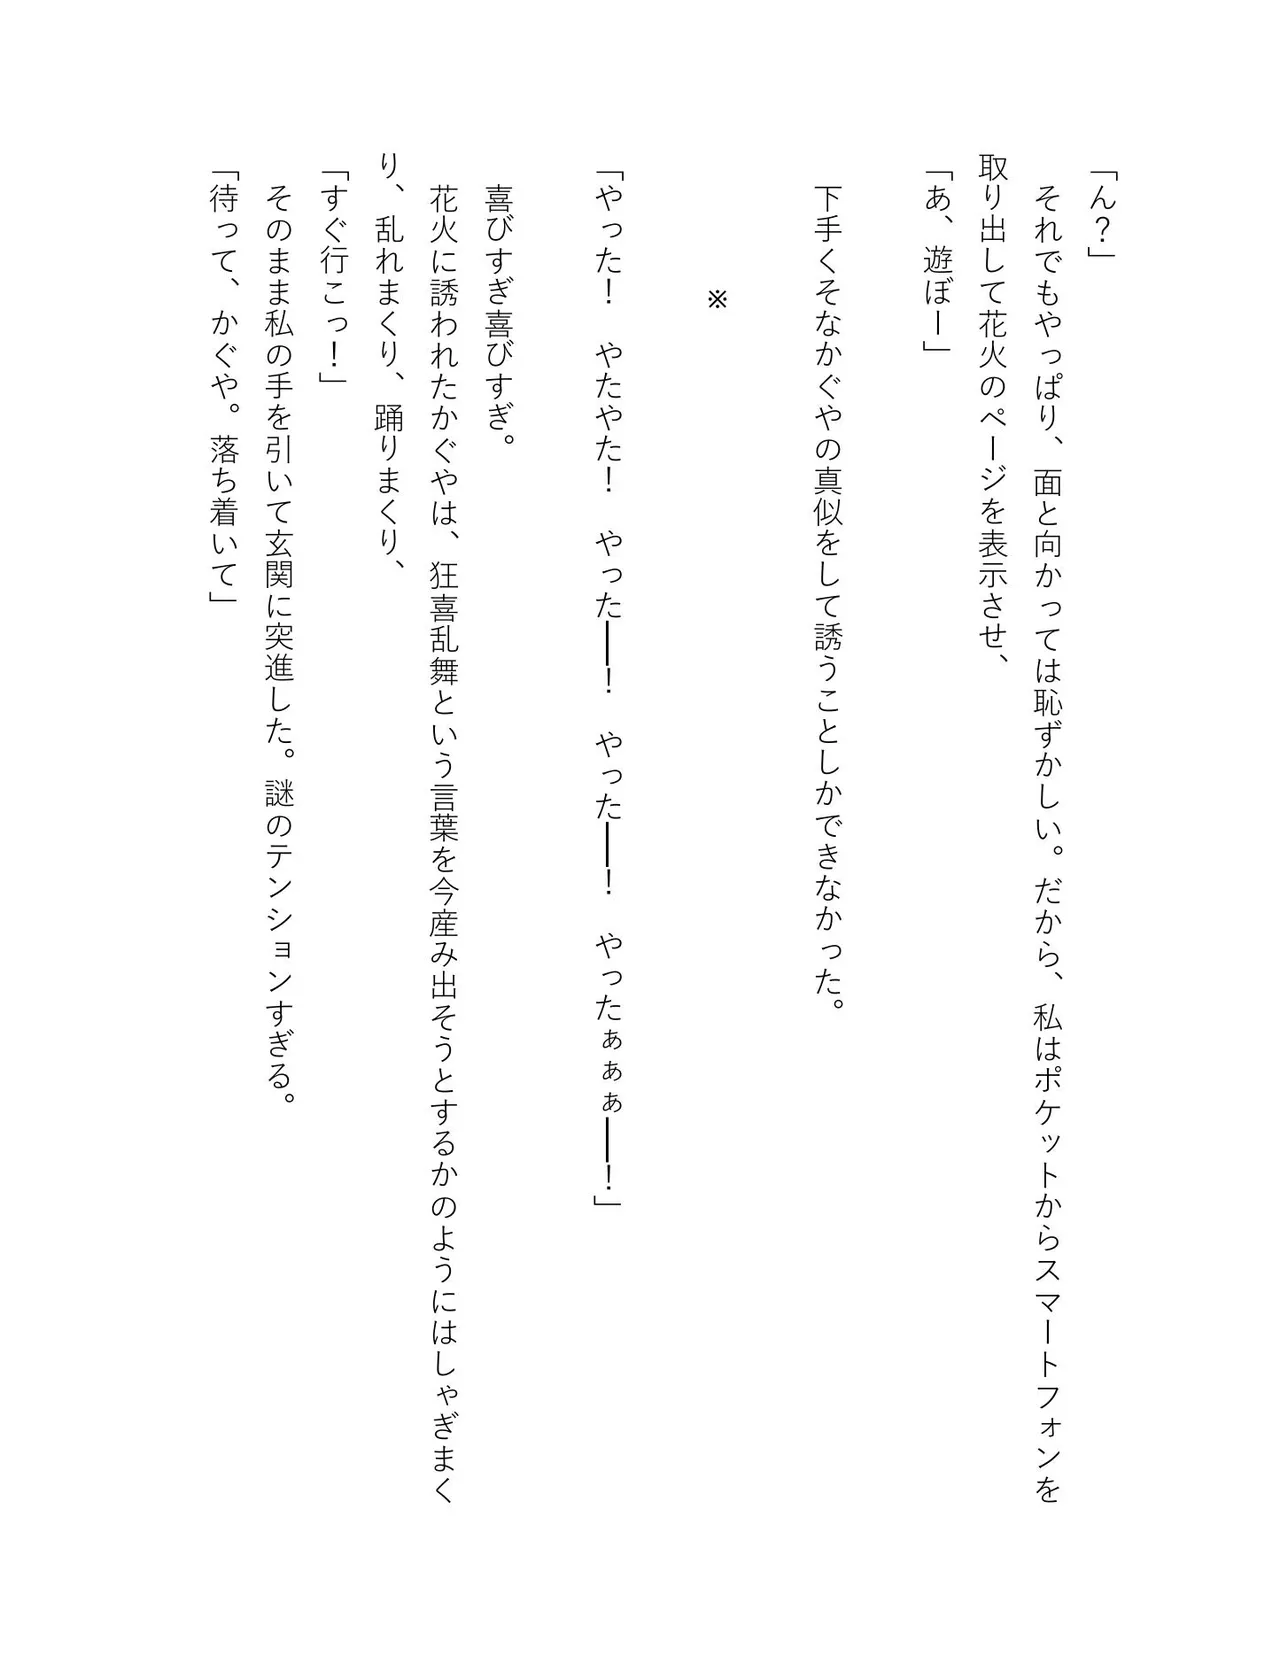 「ん？」
それでもやっぱり、面と向かっては恥ずかしい。だから、私はポケットからスマートフォンを
取り出して花火のページを表示させ、
「あ、遊ぼー」
下手くそなかぐやの真似をして誘うことしかできなかった。
※
「やった！　やたやた！　やった――！　やった――！　やったぁぁぁ――！」
喜びすぎ喜びすぎ。
花火に誘われたかぐやは、狂喜乱舞という言葉を今産み出そうとするかのようにはしゃぎまく
り、乱れまくり、踊りまくり、
「すぐ行こっ！」
そのまま私の手を引いて玄関に突進した。謎のテンションすぎる。
「待って、かぐや。落ち着いて」